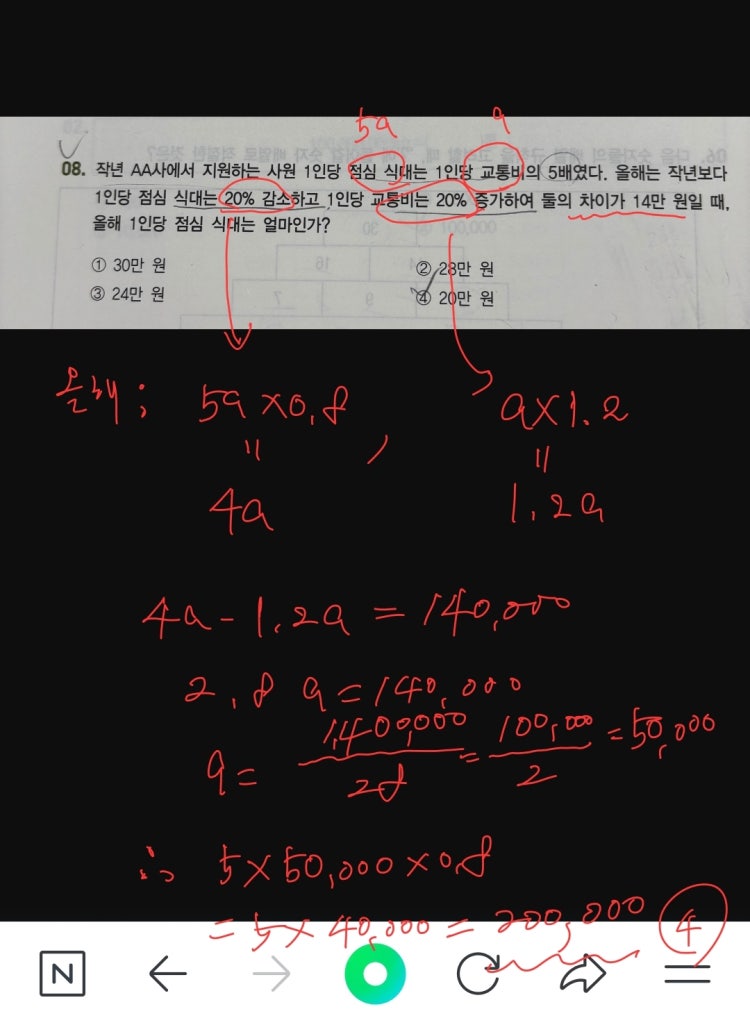 5a
a
08. 작년 AA사에서 지원하는 사원 1인당 점심 식대는 1인당 교통비의 5배였다. 올해는 작년보다
1인당 점심 식대는 20% 감소하고 1인당 교통비는 20% 증가하여 둘의 차이가 14만 원일 때,
올해 1인당 점심 식대는 얼마인가?
① 30만 원 ② 28만 원
③ 24만 원 ④ 20만 원
올해; 5a×0.8 , a×1.2
= =
4a 1.2a
4a-1.2a=140,000
2.8 a=140,000
a= 1,400,000/28 = 100,000/2 =50,000
∴ 5×50,000×0.8
=5×40,000=200,000 ④
N